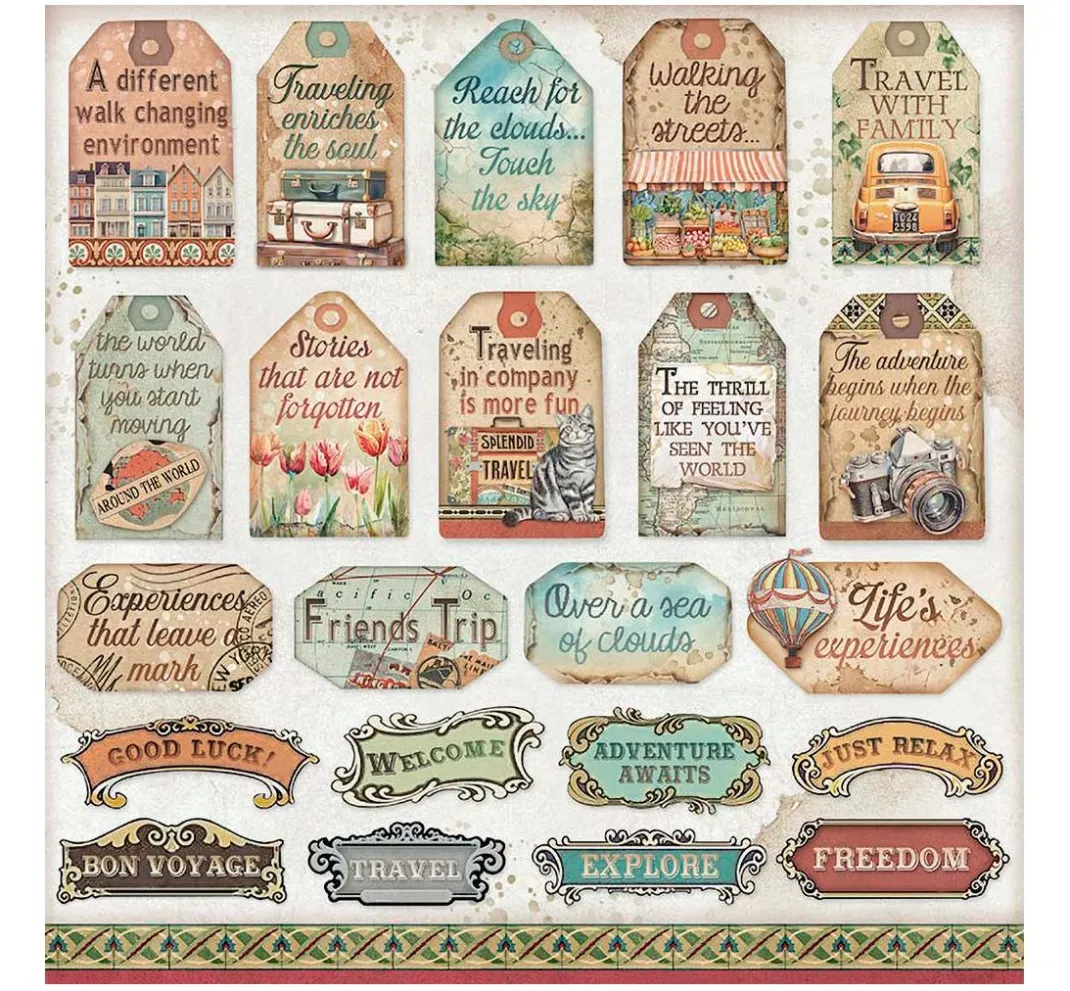 A different
walk changing
environment
Traveling
enriches
the soul
Reach for
the clouds...
Touch
the sky
Walking
the
streets...
TRAVEL
WITH
FAMILY
TO24
2598
the world
turns when
you start
moving
AROUND THE WORLD
Stories
that are not
forgotten
Traveling
in company
is more fun
SPLENDID
TRAVEL
THE THRILL
OF FEELING
LIKE YOU'VE
SEEN THE
WORLD
MERIDIONAL
The adventure
begins when the
journey begins
Experiences
that leave a
mark
AEREO
Pacific Oc
Friends Trip
Over a sea
of clouds
Life's
experiences
GOOD LUCK!
WELCOME
ADVENTURE
AWAITS
JUST RELAX
BON VOYAGE
TRAVEL
EXPLORE
FREEDOM